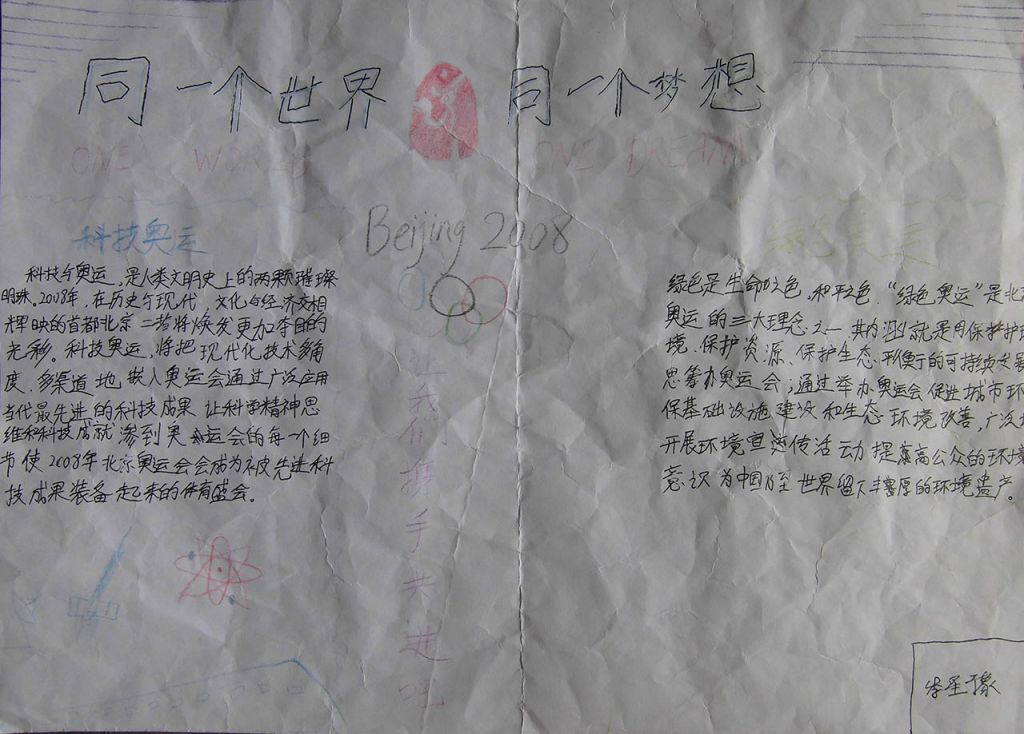 同一个世界 同一个梦想
ONE WORLD ONE DREAM
Beijing 2008
科技奥运
科技与奥运,是人类文明史上的两颗璀璨
明珠。2008年,在历史与现代,文化与经济交相
辉映的首都北京二者将焕发更加夺目的
光彩。科技奥运,将把现代化技术多角
度、多渠道地嵌入奥运会通过广泛应用
当代最先进的科技成果 让科学精神思
维和科技成就渗到奥运会的每一个细
节使2008年北京奥运会会成为被先进科
技成果装备起来的体育盛会。
让我们携手共进吧
绿色奥运
绿色是生命之色,和平之色,“绿色奥运”是北
奥运的三大理念之一 其内涵就是用保护
境、保护资源、保护生态平衡的可持续发展
思筹办奥运会;通过举办奥运会促进城市环
保基础设施建设和生态环境改善,广泛
开展环境宣传活动提高公众的环境
意识为中国乃至世界留下丰厚的环境遗产。